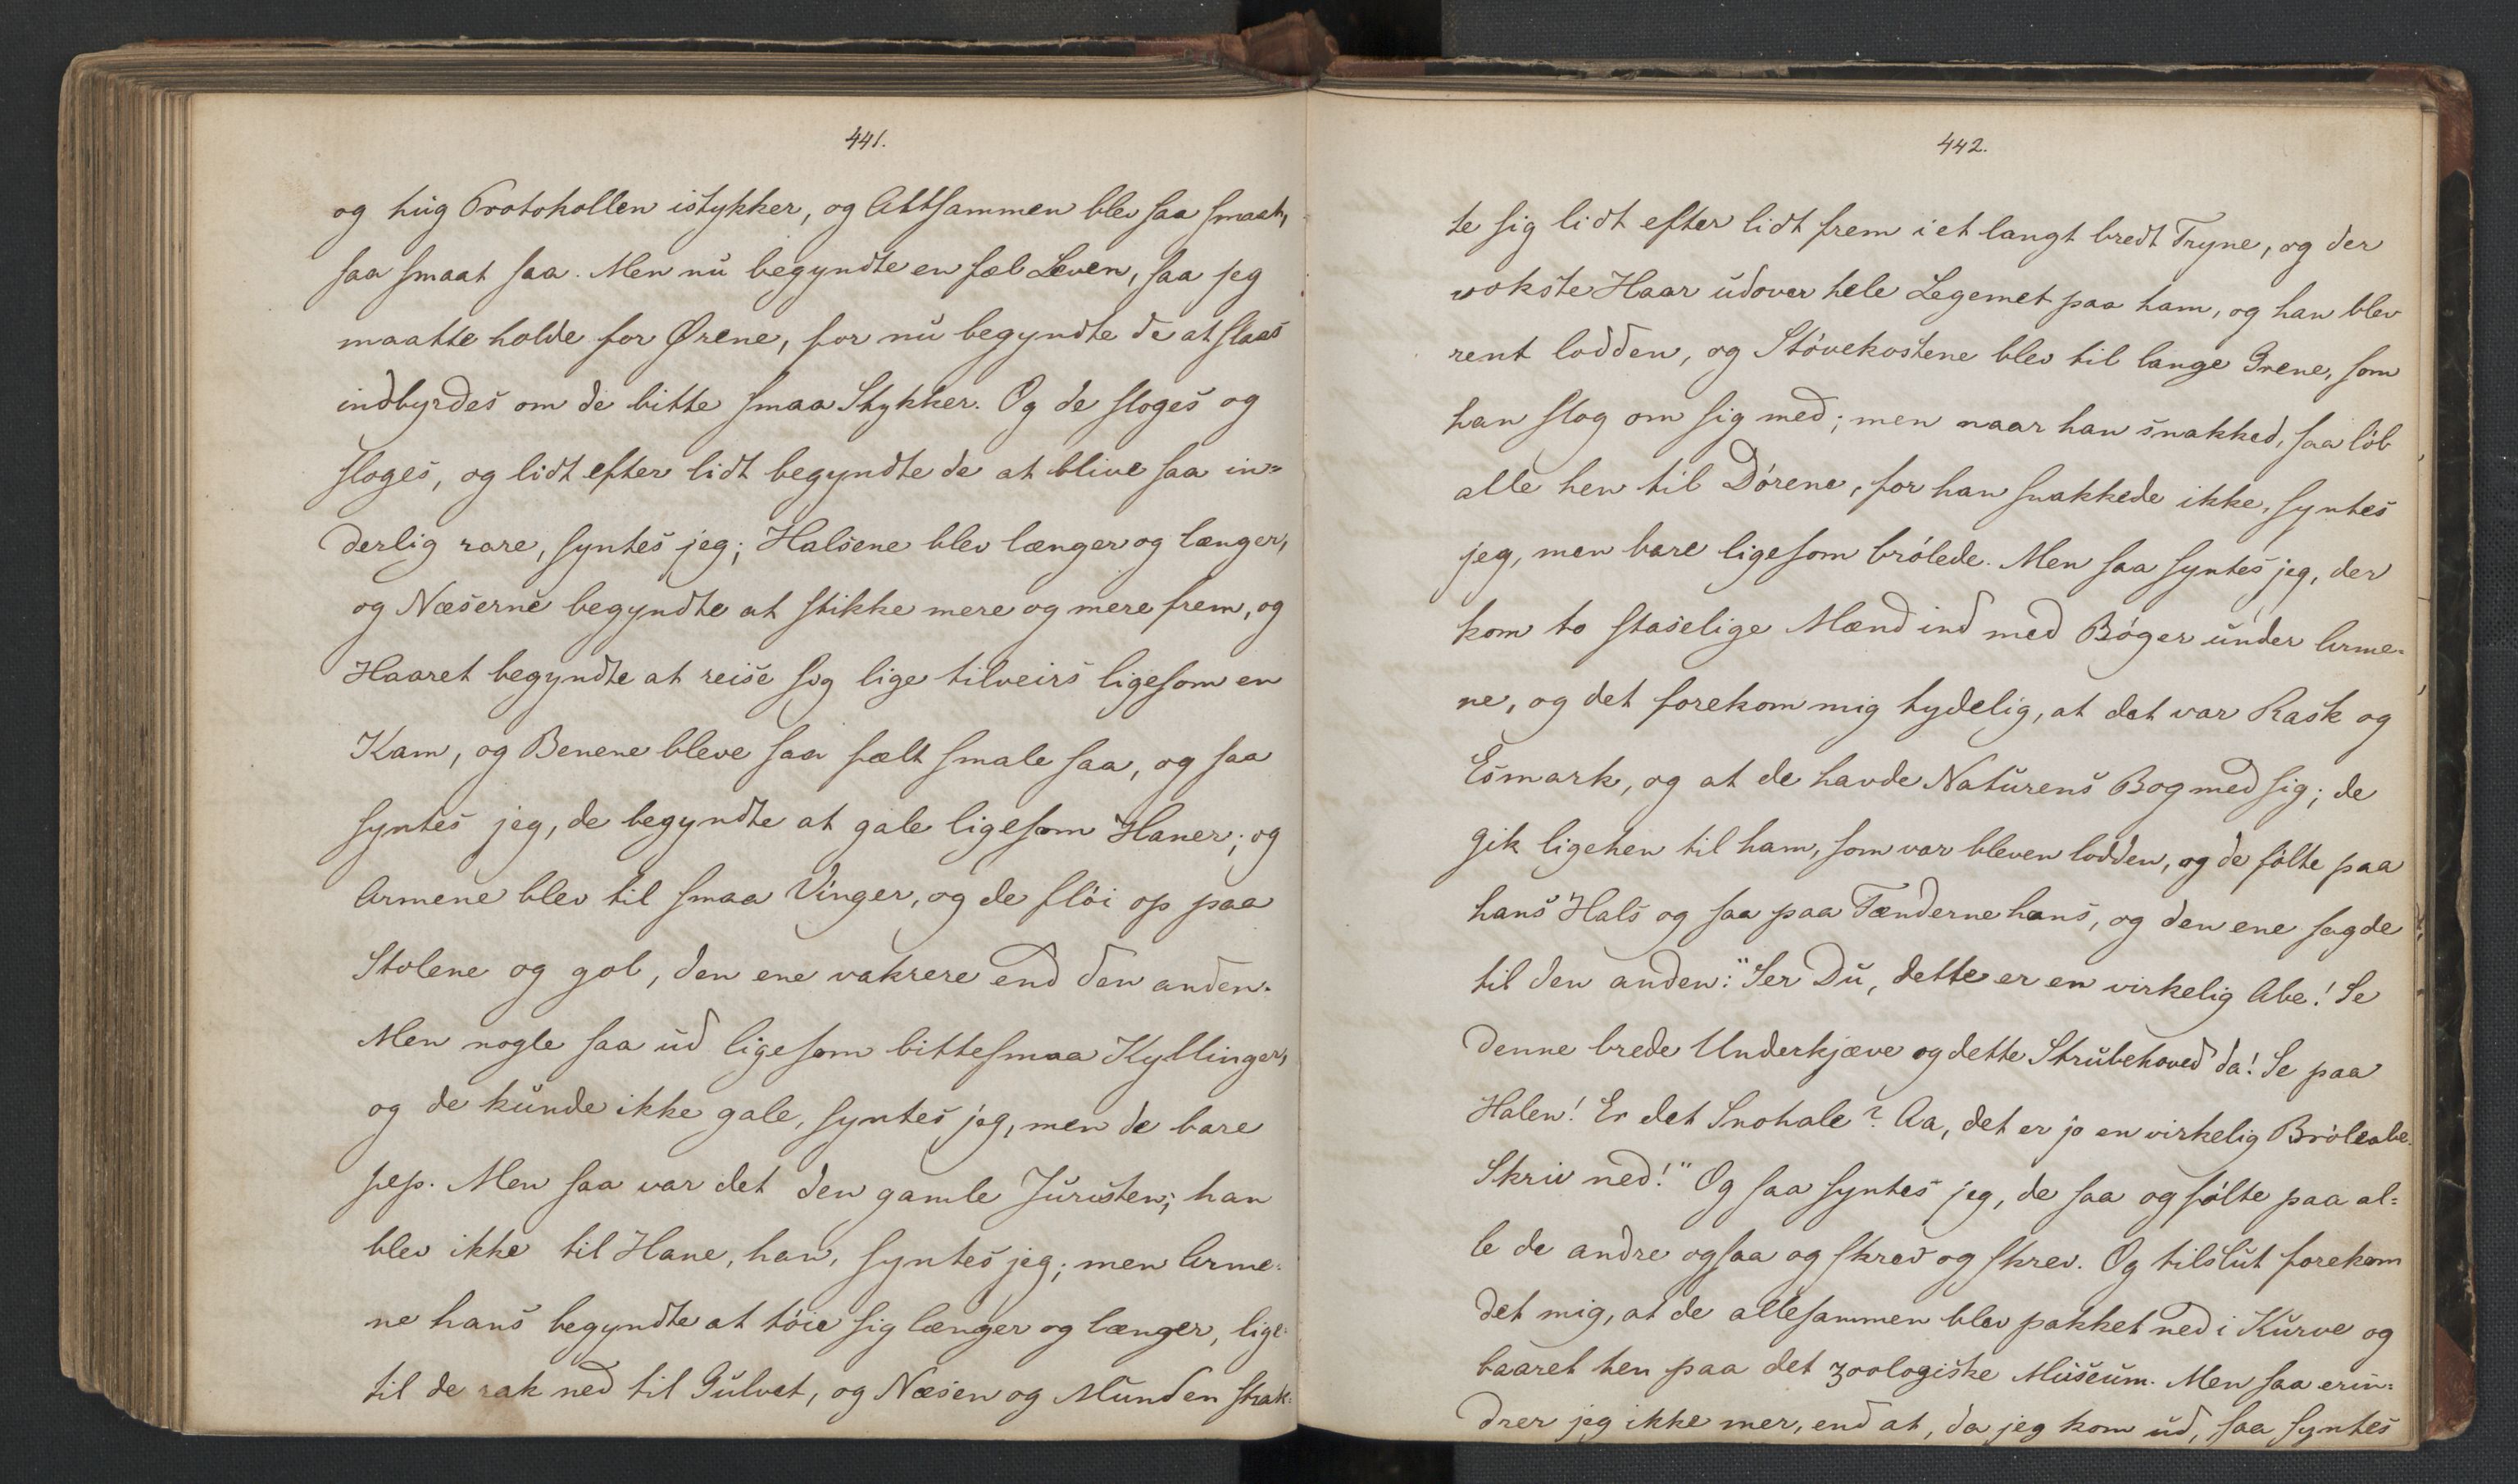 441.
og hug Protokollen istykker, og Altsammen blev saa smaat,
saa smaat saa. Men nu begyndte en fæl Leven, saa jeg
maatte holde for Ørene, for nu begyndte de at slaas
indbyrdes om de bitte smaa Stykker. Og de sloges og
sloges, og lidt efter lidt begyndte de at blive saa in-
derlig rare, syntes jeg; Halsene blev længer og længer,
og Næserne begyndte at stikke mere og mere frem, og
Haaret begyndte at reise sig lige tilveirs ligesom en
Kam, og Benene bleve saa fælt smale saa, og saa
syntes jeg, de begyndte at gale ligesom Haner; og
Armene blev til smaa Vinger, og de fløi op paa
Stolene og gol, den ene vakrere end den anden.
Men nogle saa ud ligesom bittesmaa Kyllinger,
og de kunde ikke gale, syntes jeg, men de bare
pep. Men saa var det den gamle Juristen; han
blev ikke til Hane, han, syntes jeg; men Arme-
ne hans begyndte at tøie sig længer og længer, lige-
til de rak ned til Gulvet, og Næsen og Munden strak-
442.
te sig lidt efter lidt frem i et langt bredt Tryne, og der
vokste Haar udover hele Legemet paa ham, og han blev
rent lodden, og Støvekostene blev til lange Grene, som
han slog om sig med; men naar han snakked, saa løb
alle hen til Dørene, for han snakkede ikke, syntes
jeg, men bare ligesom brølede. Men saa syntes jeg, der
kom to staselige Mænd ind med Bøger under Arme-
ne, og det forekom mig tydelig, at det var Rask og
Esmark, og at de havde Naturens Bog med sig; de
gik ligehen til ham, som var bleven lodden, og de følte paa
hans Hals og saa paa Tænderne hans, og den ene sagde
til den anden: "Ser Du, dette er en virkelig Abe! Se
denne brede Underkjæve og dette Strubehoved da! Se paa
Halen! Er det Snohale? Aa, det er jo en virkelig Brøleabe.
Skriv ned!" Og saa syntes jeg, de saa og følte paa al-
le de andre ogsaa og skrev og skrev. Og tilslut forekom
det mig, at de allesammen blev pakket ned i Kurve og
baaret hen paa det zoologiske Museum. Men saa erin-
drer jeg ikke mer, end at, da jeg kom ud, saa syntes